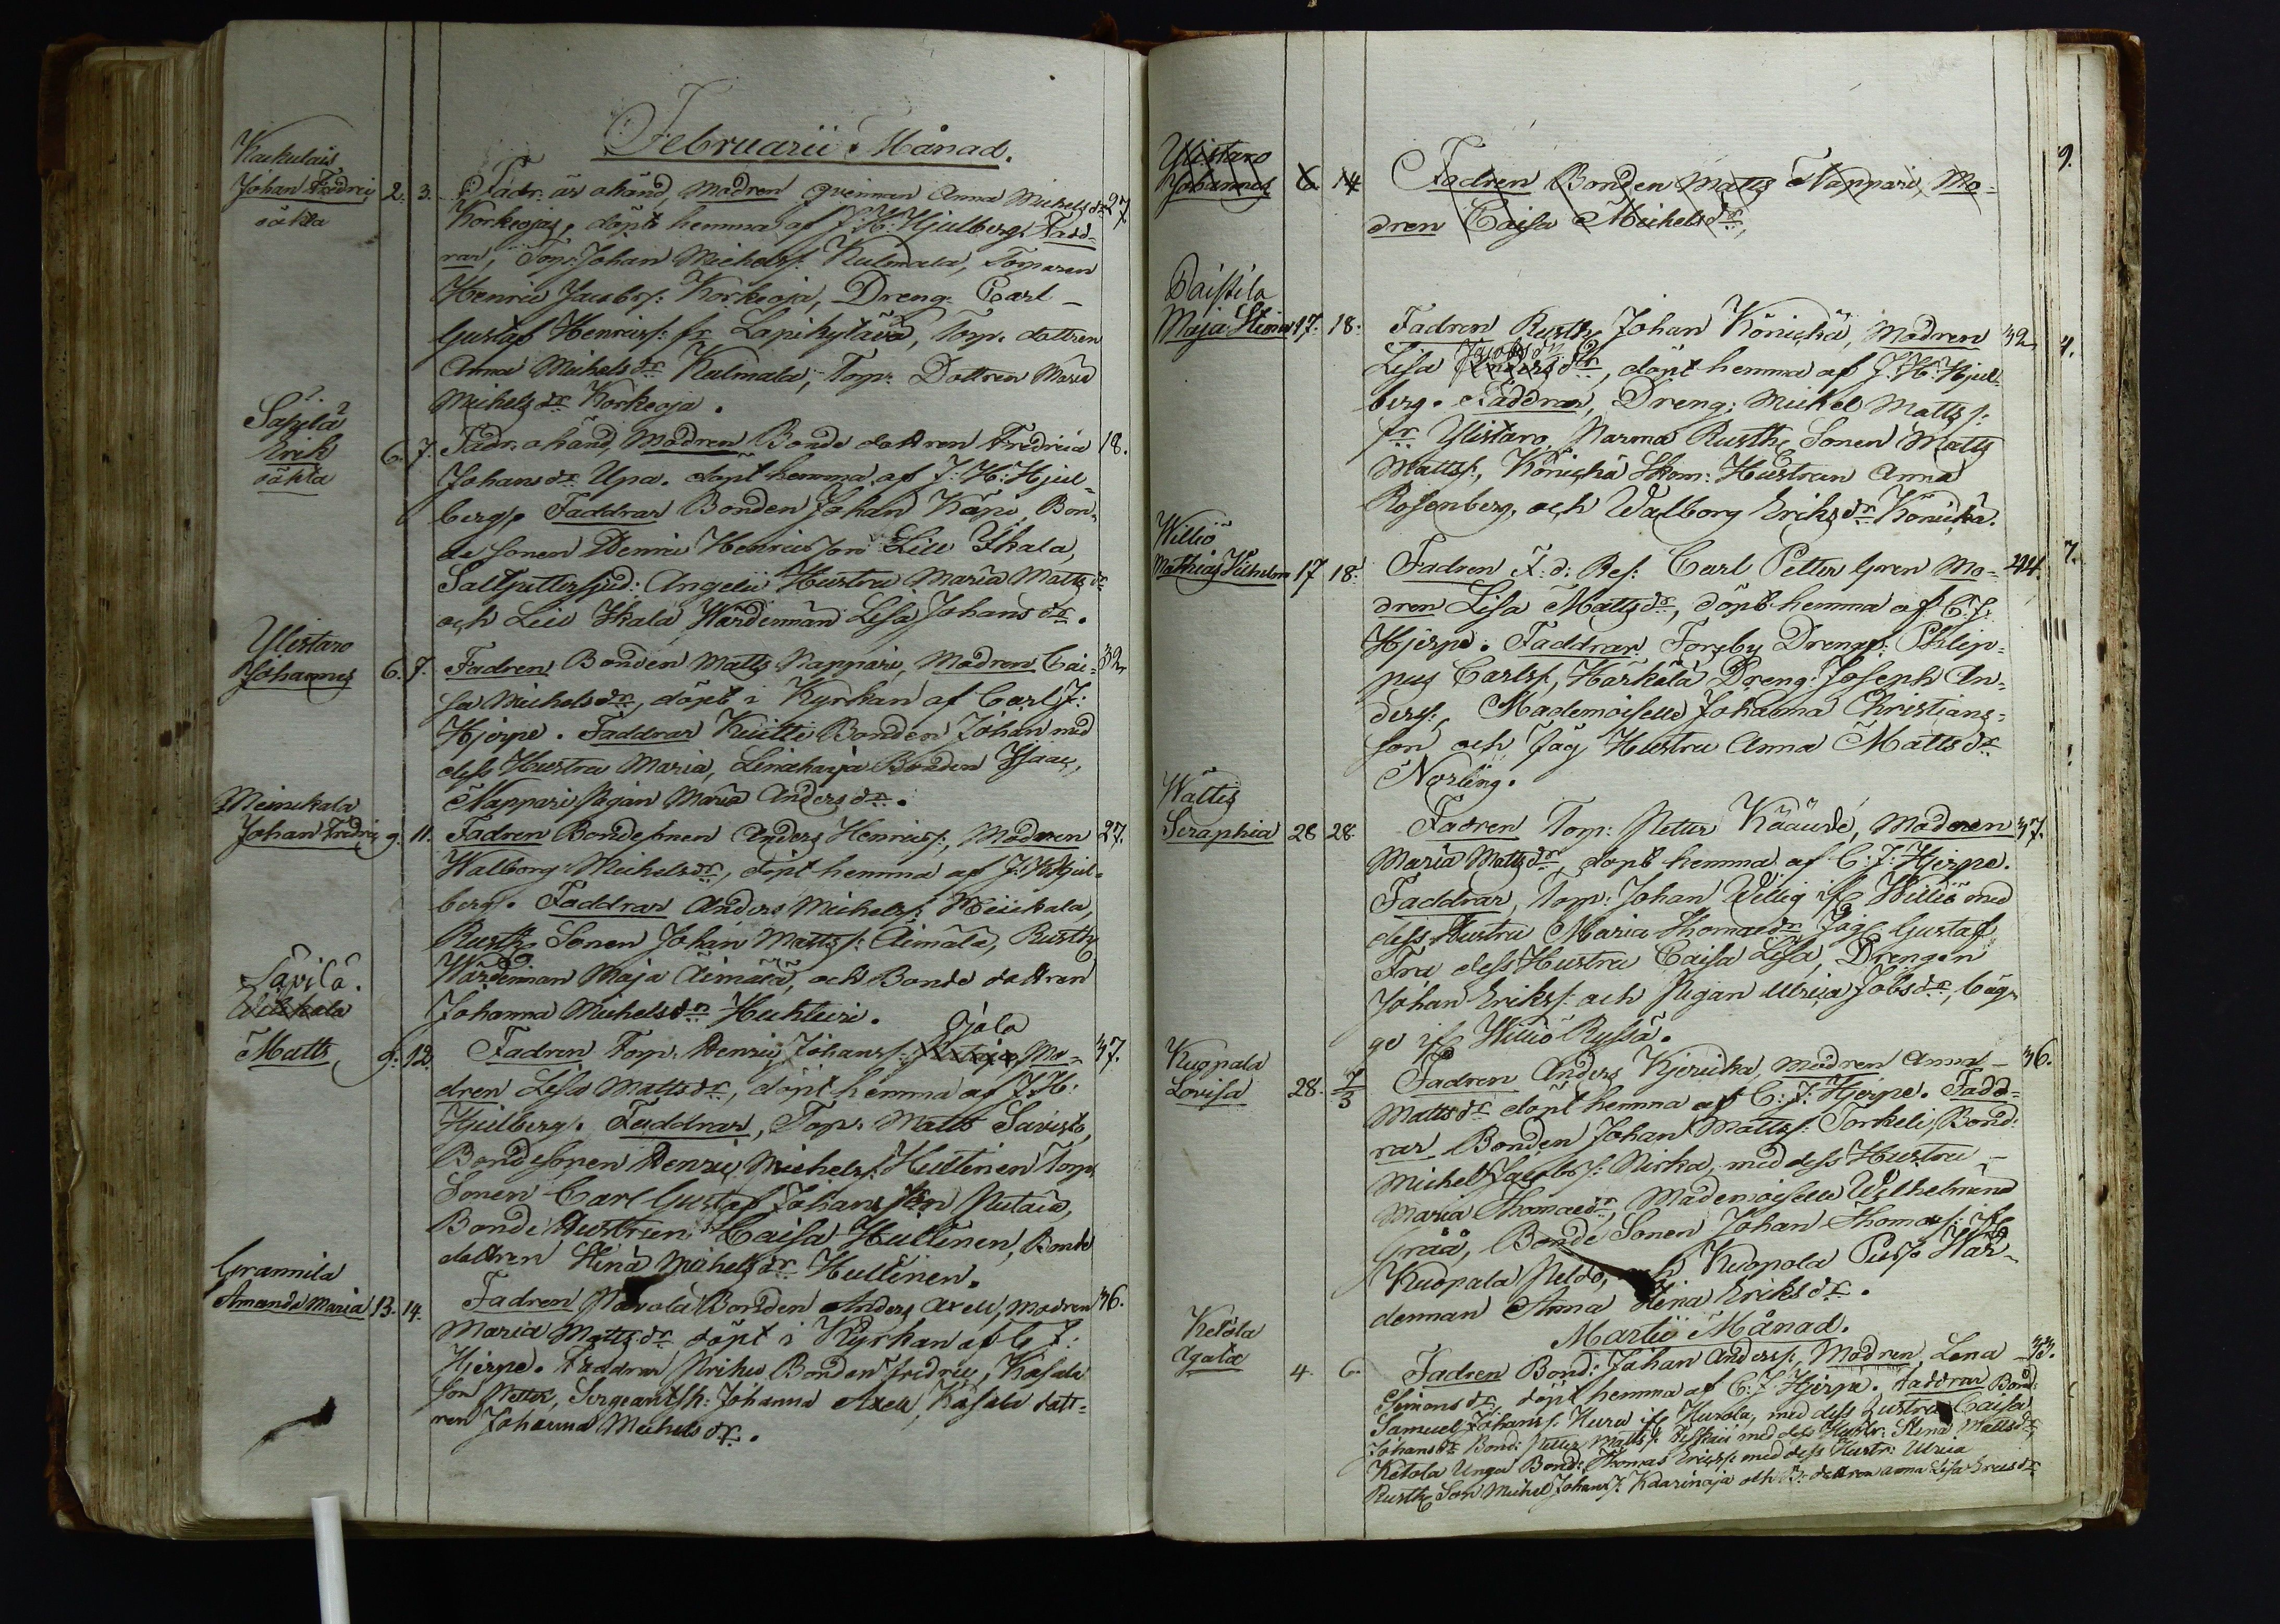 Februarii Månad.
Kaukulais
Johan Fredric 2. 3. Fadr. är okänd, Modren qvinnan Anna Michelsdr 27
oäkta
Korkeoja, döpt hemma af J. H. Hjulberg, Fadd-
rar, Torp: Johan Michelss: Kulmala, Torparen
Henric Jacobss: Korkeoja, Dreng: Carl
Gustaf Henricss: fr Lapikylävä, Torp. dottren
Anna Michelsdr Kulmala, Torp: Dottren Maria
Michelsdr Korkeoja.
Säpilä
Erik 6. 7. Fadr. okänd, Modren Bonde dottren Fredrica 18.
oäkta
Johansdr Upa. döpt hemma af J: H: Hjul-
berg. Faddrar Bonden Johan Käpi, Bon-
de sonen Henric Henricsson Lill Ikala,
Maria Matts dr
och Lill Ikala Värdinnan Lisa Johansdr.
Ylistaro
Johannes 6. 7. Fadren Bonden Matts Nappari, Modren Cai- 32
sa Michelsdr, döpt i Kyrkan af Carl J:
Hjerpe. Faddrar Bonden Johan med
dess Hustru Maria, Bonden Isaac,
Nappari Pigan Maria Andersdr.
Meinikala
Johan Fredric 9. 11. Fadren Bondesonen Anders Henricss:, Modren 27.
Walborg Michelsdr, döpt hemma af J: H: Hjul-
berg. Faddrar Anders Michelss:
Rusth: Sonen Johan Mattss: Äimälä, Rusth:
Wärdinnan Maja Äimälä, och Bonde dottren
Johanna Michelsdr Huhturi.
Säpilä.
Matts 9. 12. Fadren Torp. Henric Johanss: Ojala Mo- 37.
dren Lisa Mattsdr, döpt hemma af J. H:
Hjulberg. Faddrar, Torp: Matts Savisto,
Bondesonen Henric Michelss: Huttinen Torp.
Sonen Carl Gustaf Johansson
Bonde Hustrun Caisa Huttinen, Bonde
dottren Stina Michelsdr Huttinen.
Grannila
Amanda Maria 13. 14. Fadren Bonden Anders Axell, Modren 36.
Maria Mattsdr döpt i Kyrkan af C. J:
Hjerpe. Faddrar Bonden Fredric, Kasala
Son Petter, Sergeantsk: Johanna Axell, Kasala dott-
ren Johanna Michelsdr.
Ylistaro 9.
Johannes 6 14 Fadren Bonden Matts Nappari, Mo-
dren Caisa Michelsdr,
Paistila
Maja Stina 17. 18. Fadren Rusth: Johan Könickä, Modren 32. 4.
Lisa Jacobsdr, döpt hemma af J. H. Hjul-
berg. Faddrar, Dreng: Michel Mattss:
fr Ylistaro, Rusth: Sonen Matts
Mattss:, Könickä Skom: Hustrun Anna
Rosenberg, och Walborg Eriksdr Könickä.
Williö
Mathias Wilhelm 17 18. Fadren Carl Petter Gren Mo- 44. 7.
dren Lisa Mattsdr, döpt hemma af C. J.
Hjerpe. Faddrar Forsby Drengs: Philip-
pus Carlss:, Härkälä Dreng: Joseph An-
derss:, Mademoiselle Johanna Christians-
son, och Jäg: Hustru Anna Mattsdr
Norling.
Wättis
Seraphia 28 28. Fadren Torp: Petter, Modren 37.
Maria Mattsdr, döpt hemma af C: J: Hjerpe.
Faddrar, Torp: Johan Willig ifr Williö med
dess Hustru Maria Thomaedr Jäg: Gustaf
dess Hustru Caisa Lisa, Drengen
Johan Erikss: och Pigan Ulrica Jobsdr, bäg-
ge ifr Williö Ryssä.
Kuopala
Lovisa 28. 4/3 Fadren Anders Kjericka, Modren Anna 36.
Mattsdr döpt hemma af C: J: Hjerpe. Fadd-
rar Bonden Johan Mattss: Torkeli, Bond:
Michel Jacobss: Nirka, med dess Hustru
Maria Thomaedr, Mademoiselle Wilhelmina
Gråå, Bonde Sonen Johan Thomass: ifr
Kuopala, och Kuopala Wär-
dennan Anna Stina Eriksdr.
Martii Månad.
Ketola
Agata 4. 6. Fadren Bond: Johan Anderss:, Modren, Lena 33.
Simonsdr, döpt hemma af C: J: Hjerpe. Faddrar Bond:
Samuel Johanss: ifr Hurola, med dess Hustru Caisa
Johansdr Bond: Petter Mattss: med dess Hustr: Stina Mattsdr,
Ketola Unga Bond: Thomas Ericss: med dess Hustr: Ulrica
Rusth: Son Michel Johanss: Kaarinoja och dottren Anna Lisa Ericsdr